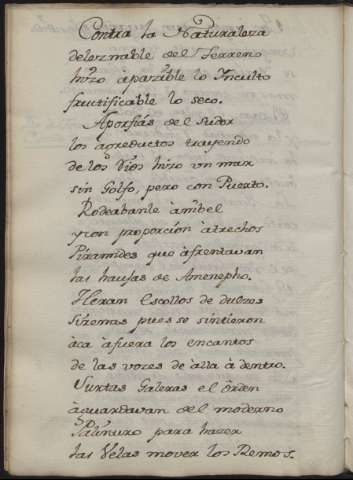 Contra la Naturaleza
deleznable del Terreno
hizo àpazible lo Ynculto
fructificable lo seco.
Aporfias del Sudor
los aqueductos trayendo
de los Rios hizo un mar
sin Golfo, pero con Puerto.
Rodeabanle à nibel
y con proporcion àtrechos
Piramides que àfrentavan
las de Amenepho.
Y Eran Escollos de dulzes
Sirenas pues se sintieron
àca àfuera los encantos
de las vozes de àlla àdentro.
Surtas Galeras el òrden
àguardavan del moderno
Palinuro para hazer
las Velas mover los Remos.